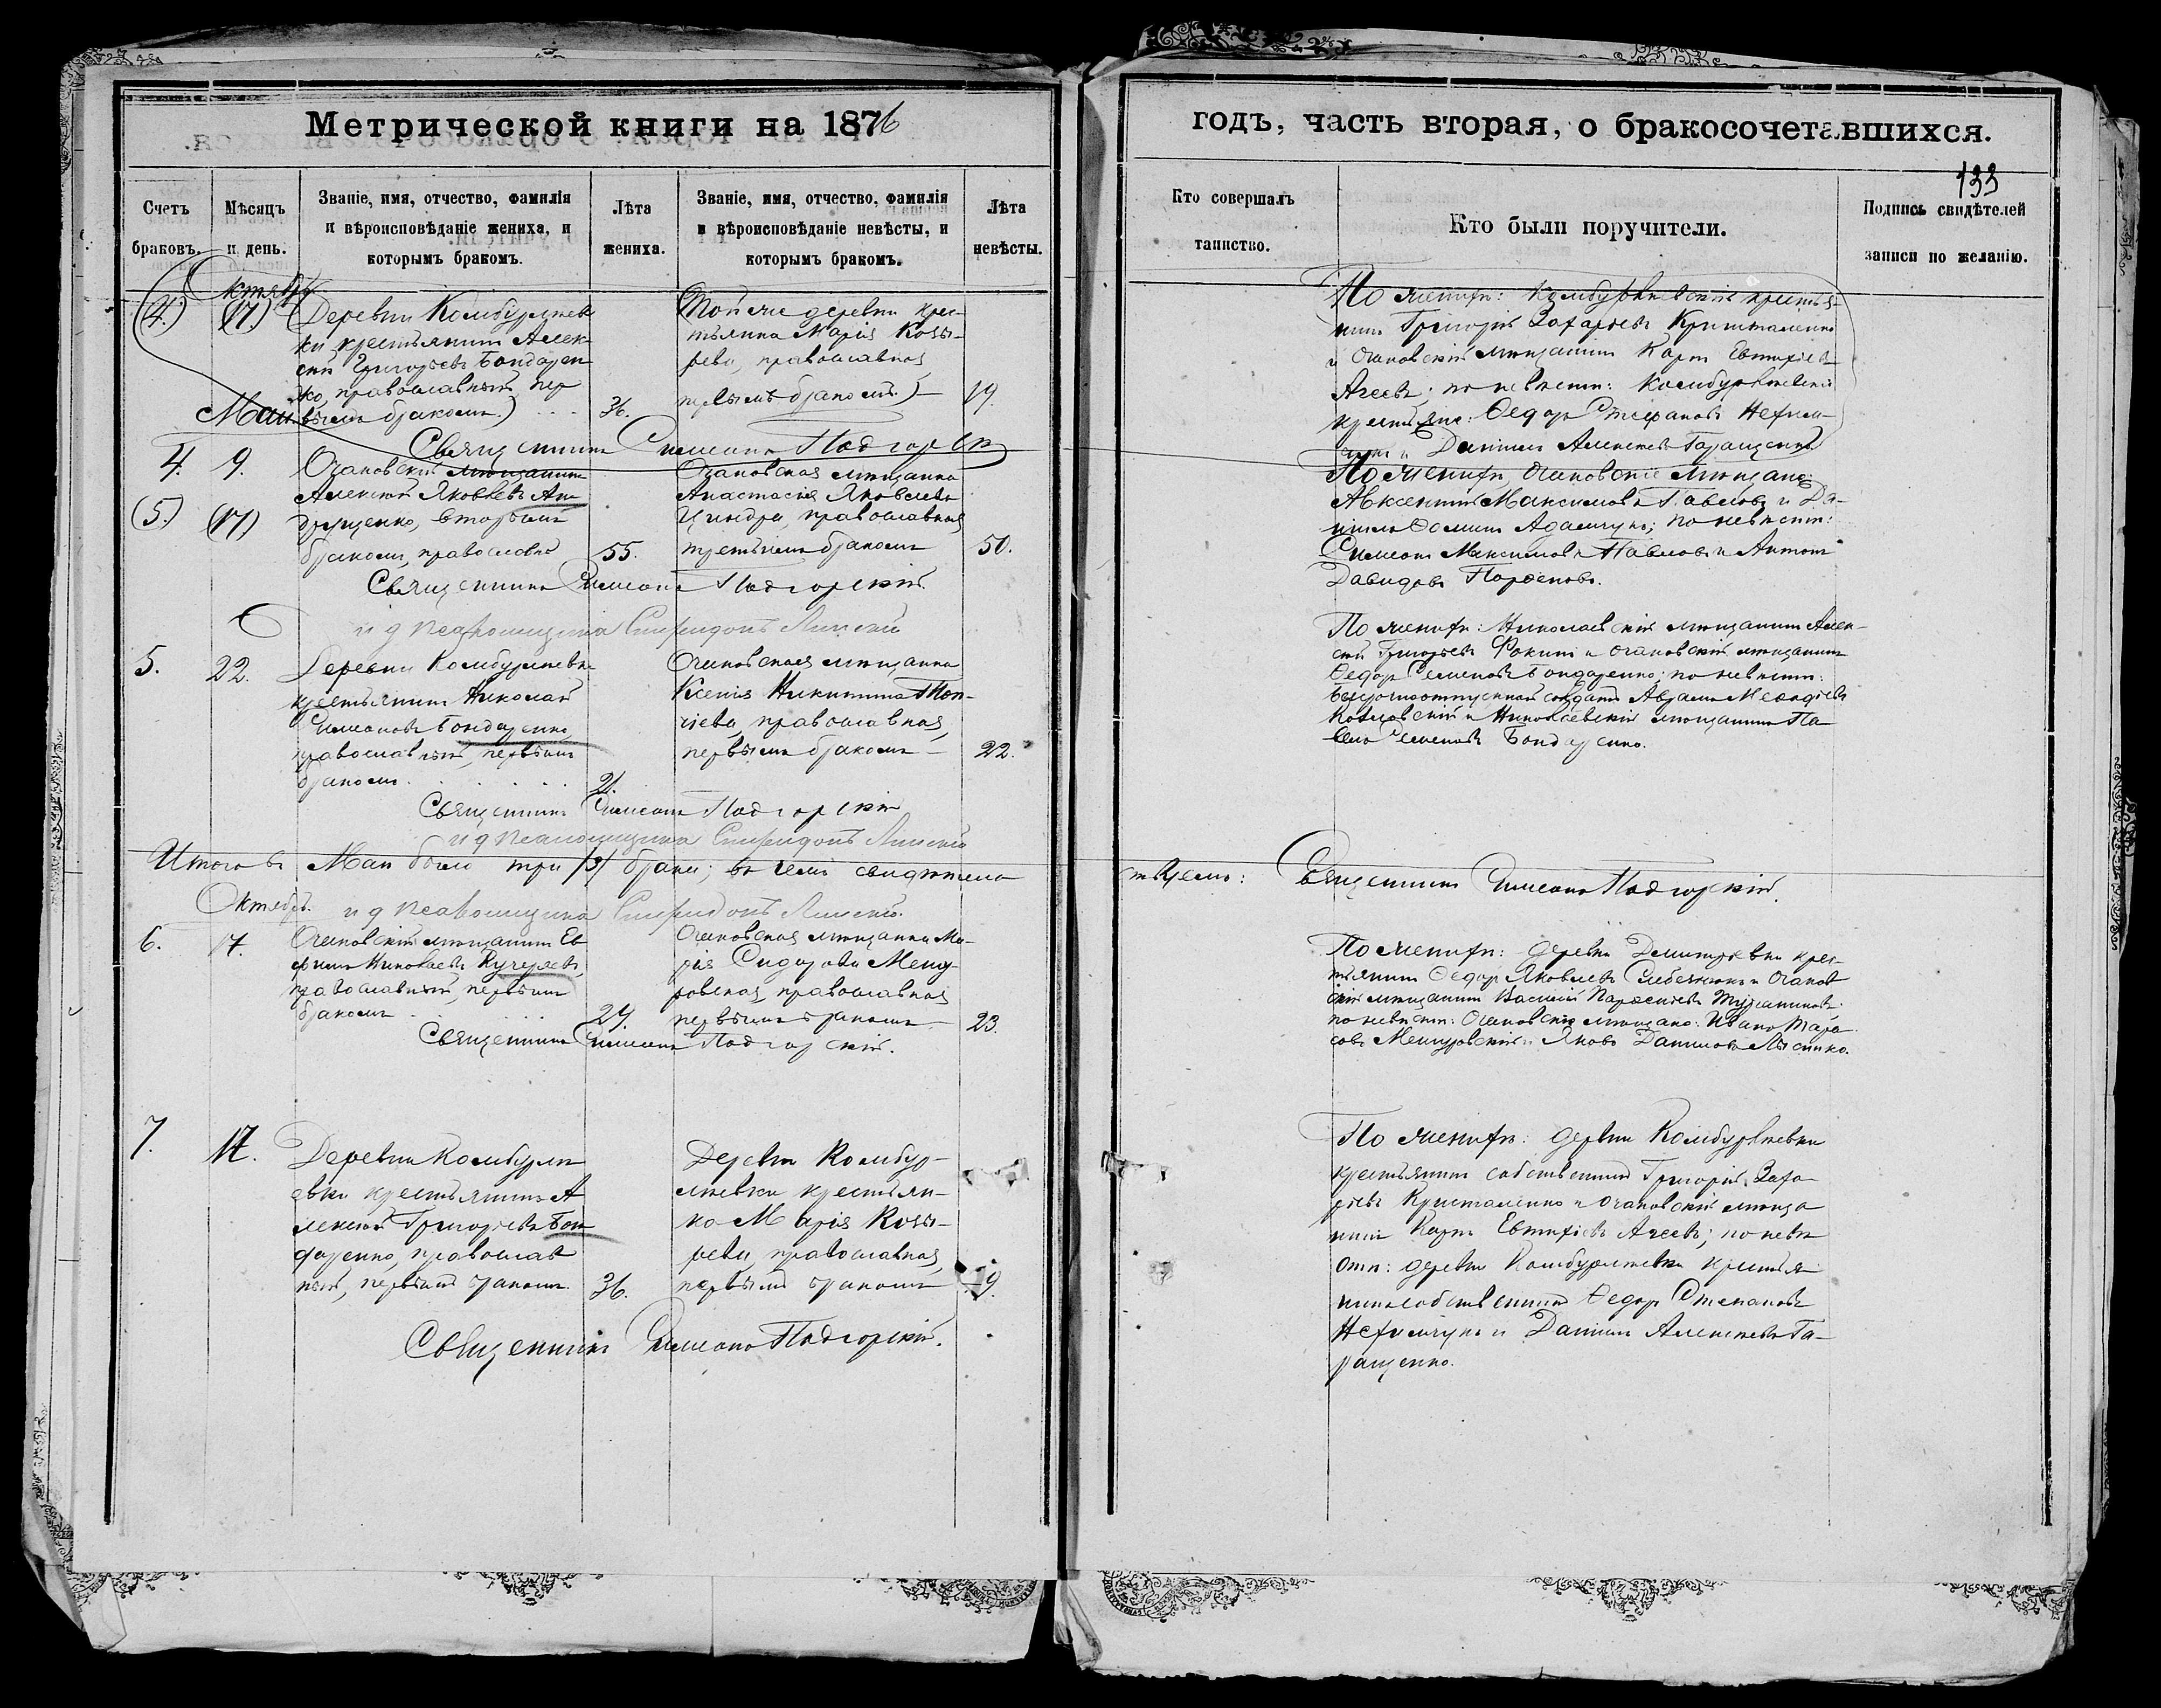 Метрической книги на 1876
годъ, часть вторая, о бракосочетавшихся.
133
Счетъ браковъ.
Мѣсяцъ и день.
Званіе, имя, отчество, фамилія и вѣроисповѣданіе жениха, и которымъ бракомъ.
Лѣта жениха.
Званіе, имя, отчество, фамилія и вѣроисповѣданіе невѣсты, и которымъ бракомъ.
Лѣта невѣсты.
Кто совершалъ таинство.
Кто были поручители.
Подпись свидѣтелей записи по желанію.
Октябрь
(4.)
(17.)
Деревни Комбурлеев
ки крестьянинъ Алек-
сѣй Григорьевъ Бондарен
ко, православный, пер
вымъ бракомъ.)
36.
Той же деревни крес-
тьянка Марія Козы-
рева, православная,
первымъ бракомъ.)
19.
По женихѣ: Комбурлѣевскій крестья-
нинъ Григорій Захарьевъ Кришталенко
и Очаковскій мѣщанинъ Карпъ Евтихіевъ
Агеевъ; по невѣстѣ: Комбурлѣевскіе
крестьяне: Ѳедоръ Стефановъ
и Даніилъ Алексѣевъ Таращенко
Священникъ Симеонъ Подгорскій
Маи
4.
9.
(5.)
(17)
Очаковскій мѣщанинъ
Алексѣй Яковлевъ Ан
друщенко, вторымъ
бракомъ, православный
55.
Очаковская мѣщанка
Анастасія Яковлева
Циндра, православная
третьимъ бракомъ
50.
По женихѣ, Очаковскіе мѣщане
Авксентій Максимовъ Павловъ и Да-
ніилъ Ѳоминъ Адамчукъ; по невѣстѣ:
Симеонъ Максимовъ Павловъ и Антонъ
Давидовъ Парѳеновъ.
Священникъ Симеонъ Подгорскій.
и д псаломщика Спиридонъ Линскій
5.
22.
Деревни Комбурлеевки
крестьянинъ Николай
Симеоновъ Бондаренко,
православный, первымъ
бракомъ.
21.
Очаковская мѣщанка
Ксенія Никитина Поп-
чіева, православная,
первымъ бракомъ
22.
По женихѣ: Николаевскій мѣщанинъ Алек-
сѣй Григорьевъ Фокинъ и Очаковскій мѣщанинъ
Ѳедоръ Семеновъ Бондаренко; по невѣстѣ:
безсрочноотпускной солдатъ Авраамъ
Козловскій и Николаевскій мѣщанинъ Па
велъ Семеновъ Бондаренко.
Священникъ Симеонъ Подгорскій
и д псаломщика Спиридонъ Линскій
Итого въ Маи было три /3/ брака; въ чемъ свидѣтель
ствуемъ: Священникъ Симеонъ Подгорскій.
и д псаломщика Спиридонъ Линскій.
Октябрь.
6.
17.
Очаковскій мѣщанинъ Ев
фимъ Николаевъ Кучеряевъ,
православный, первымъ
бракомъ
24.
Очаковская мѣщанка Ма-
рія Сидорова Мепу-
ровская, православная
первымъ бракомъ
23.
По женихѣ: деревни Дмитріевки крес-
тьянинъ Ѳедоръ Яковлевъ и Очаков
скій мѣщанинъ Василій Парѳеньевъ
по невѣстѣ: Очаковскіе мѣщане: Иванъ Тара
совъ и Яковъ Даниловъ Лысенко.
Священникъ Симеонъ Подгорскій.
7.
17.
Деревни Комбурле
евки крестьянинъ А
лексѣй Григорьевъ Бон
даренко, православ
ный, первымъ бракомъ.
36.
Деревни Комбур-
лѣевки крестьян-
ка Марія Козы-
рева, православная,
первымъ бракомъ
19.
По женихѣ: деревни Комбурлѣевки
крестьянинъ собственникъ Григорій Заха-
рьевъ Кришталенко и Очаковскій мѣща
нинъ Карпъ Евтихіевъ Агеевъ; по невѣ
стѣ: деревни Комбурлѣевки крестья
нинъ собственникъ Ѳедоръ Степановъ
и Даніилъ Алексѣевъ Та-
ращенко.
Священникъ Симеонъ Подгорскій.